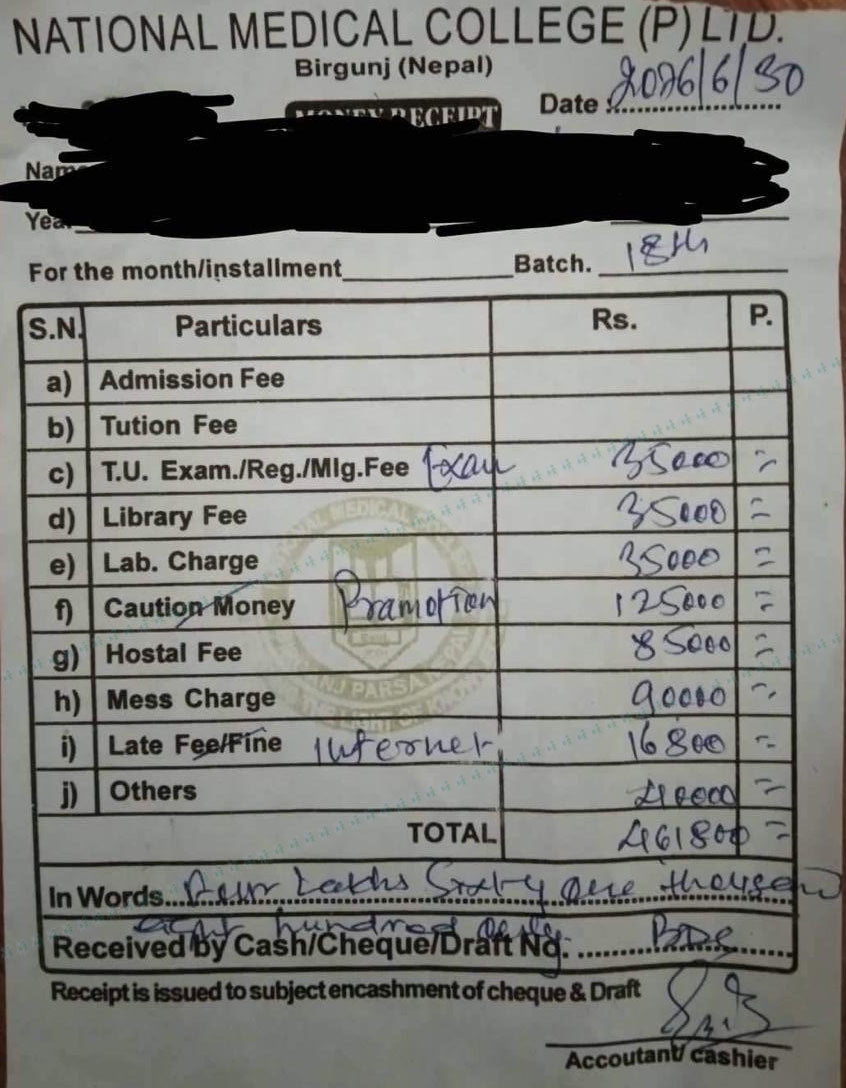 NATIONAL MEDICAL COLLEGE (P) LTD.
Birgunj (Nepal)
MONEY RECEIPT
Date : 2076/6/30
Nam
Yea
For the month/installment Batch. 18th
S.N. Particulars Rs. P.
a) Admission Fee
b) Tution Fee
c) T.U. Exam./Reg./Mlg.Fee Exam 35000 =
d) Library Fee 35000 =
e) Lab. Charge 35000 =
f) Caution Money Pramotion 125000 =
g) Hostal Fee 85000 =
h) Mess Charge 90000 =
i) Late Fee/Fine Internet 16800 =
j) Others 40000 =
TOTAL 461800 =
In Words... Four Lakhs Sixty one thousand
eight hundred only
Received by Cash/Cheque/Draft No. ..........
Receipt is issued to subject encashment of cheque & Draft
Accoutant/ cashier